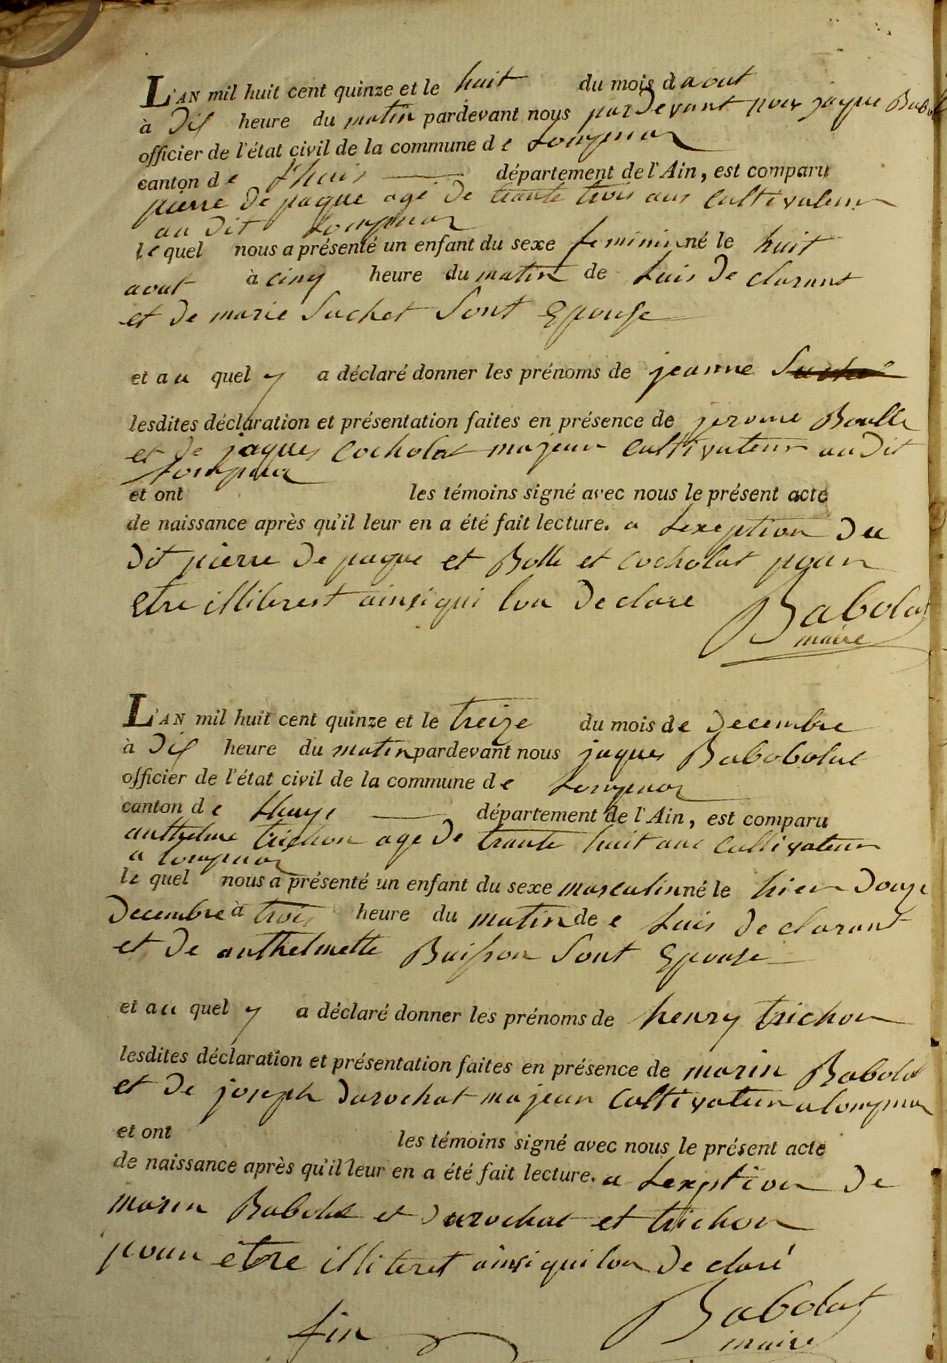 L'AN mil huit cent quinze et le huit du mois d aout
à Dix heure du matin pardevant nous pardevant nous jaque Babolat
officier de l'état civil de la commune de Lompnas
canton de Lhuis département de l'Ain, est comparu
pierre De paque agé De trante trois ans Cultivateur
au dit Lompnas
le quel nous a présenté un enfant du sexe feminin né le huit
aout à cinq heure du matin de Luis De clarant
et De marie Suchet Sont Epouse
et au quel y a déclaré donner les prénoms de jeanne
lesdites déclaration et présentation faites en présence de jerome Bolle
et De jaques Cocholat majeur Cultivateur au Dit
Lompnas
et ont les témoins signé avec nous le présent acte
de naissance après qu'il leur en a été fait lecture. a Lexeption Du
Dit pierre De paque et Bolle et Cocholat pour
etre illiterest ainsi qui lon De clare
Babolat
maire
L'AN mil huit cent quinze et le treize du mois de Decembre
à Dix heure du matin pardevant nous jaques Babobolat
officier de l'état civil de la commune de Lompnas
canton de Lhuys département de l'Ain, est comparu
anthelme trichon agé De trante huit ans Cultivateur
a Lompnas
le quel nous a présenté un enfant du sexe masculin né le hier Douze
Decembre à trois heure du matin de e Luis De clarant
et De anthelmette Buisson Sont Epouse
et au quel y a déclaré donner les prénoms de henry trichon
lesdites déclaration et présentation faites en présence de marin Babolat
et De joseph Durochat majeur Cultivateur a Lompnas
et ont les témoins signé avec nous le présent acte
de naissance après qu'il leur en a été fait lecture. a Lexption De
marin Babolat et Durochat et trichon
pour être illiteret ainsi qui lon De claré
Babolat
fin maire